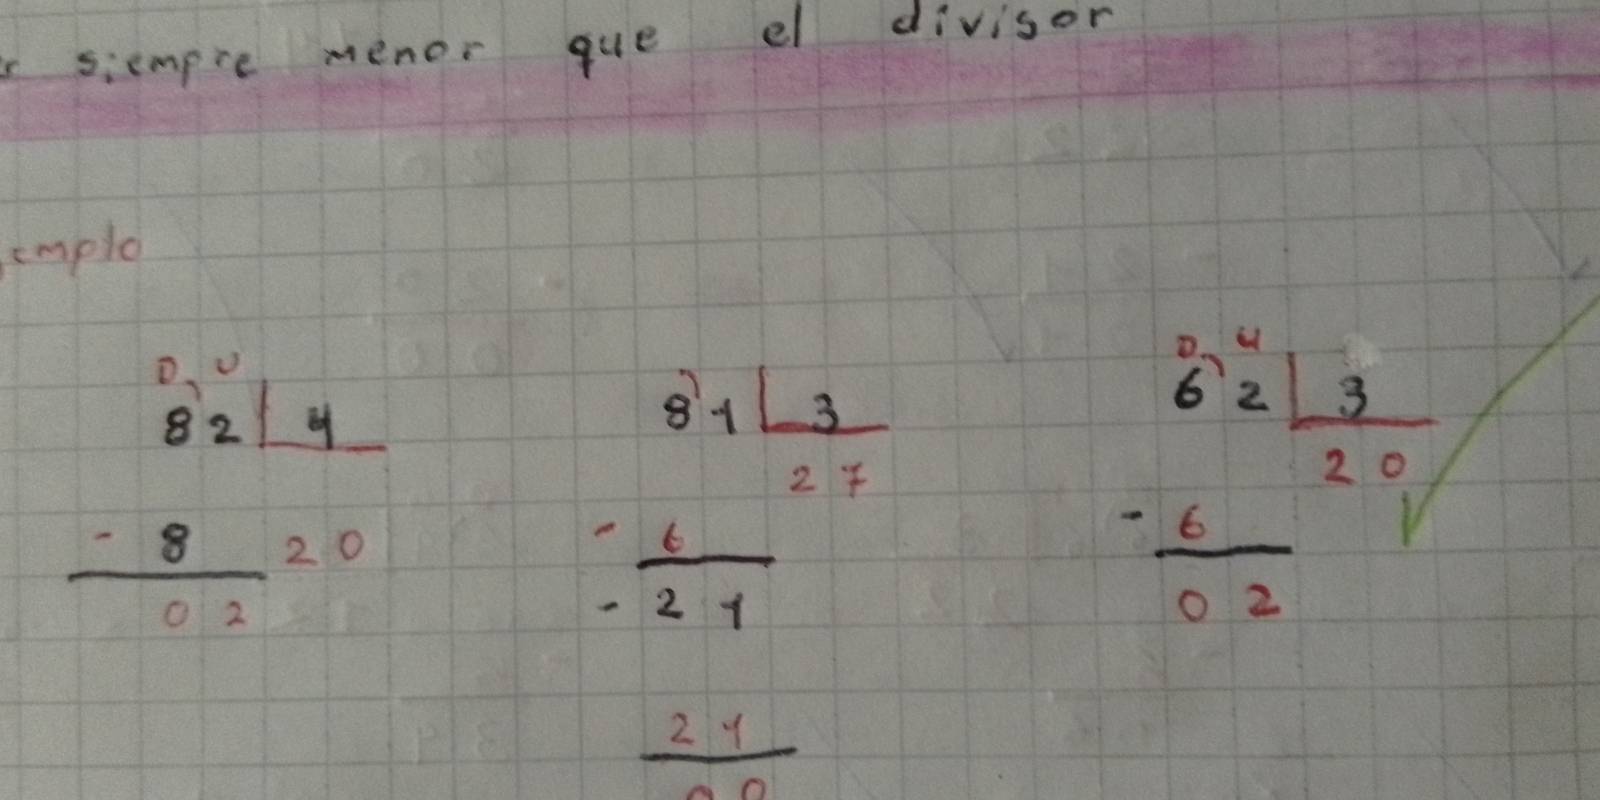 siempre menor que el divisor
emplo
D U
82 4
- 8 20
02
81 3
27
- 6
- 21
21
00
D U
62 3
20
- 6
02